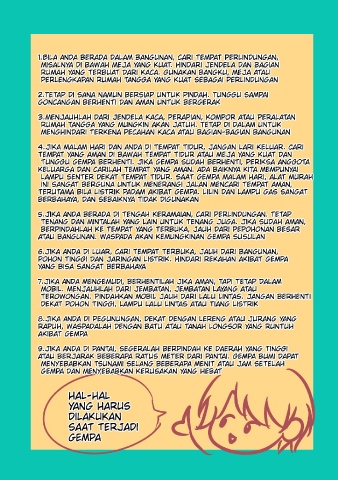 1.BILA ANDA BERADA DALAM BANGUNAN, CARI TEMPAT PERLINDUNGAN,
MISALNYA DI BAWAH MEJA YANG KUAT. HINDARI JENDELA DAN BAGIAN
RUMAH YANG TERBUAT DARI KACA. GUNAKAN BANGKU, MEJA ATAU
PERLENGKAPAN RUMAH TANGGA YANG KUAT SEBAGAI PERLINDUNGAN
2.TETAP DI SANA NAMUN BERSIAP UNTUK PINDAH. TUNGGU SAMPAI
GONCANGAN BERHENTI DAN AMAN UNTUK BERGERAK
3.MENJAUHLAH DARI JENDELA KACA, PERAPIAN, KOMPOR ATAU PERALATAN
RUMAH TANGGA YANG MUNGKIN AKAN JATUH. TETAP DI DALAM UNTUK
MENGHINDARI TERKENA PECAHAN KACA ATAU BAGIAN-BAGIAN BANGUNAN
4.JIKA MALAM HARI DAN ANDA DI TEMPAT TIDUR, JANGAN LARI KELUAR. CARI
TEMPAT YANG AMAN DI BAWAH TEMPAT TIDUR ATAU MEJA YANG KUAT DAN
TUNGGU GEMPA BERHENTI. JIKA GEMPA SUDAH BERHENTI, PERIKSA ANGGOTA
KELUARGA DAN CARILAH TEMPAT YANG AMAN. ADA BAIKNYA KITA MEMPUNYAI
LAMPU SENTER DEKAT TEMPAT TIDUR. SAAT GEMPA MALAM HARI, ALAT MURAH
INI SANGAT BERGUNA UNTUK MENERANGI JALAN MENCARI TEMPAT AMAN,
TERUTAMA BILA LISTRIK PADAM AKIBAT GEMPA. LILIN DAN LAMPU GAS SANGAT
BERBAHAYA, DAN SEBAIKNYA TIDAK DIGUNAKAN
5.JIKA ANDA BERADA DI TENGAH KERAMAIAN, CARI PERLINDUNGAN. TETAP
TENANG DAN MINTALAH YANG LAIN UNTUK TENANG JUGA. JIKA SUDAH AMAN,
BERPINDAHLAH KE TEMPAT YANG TERBUKA, JAUH DARI PEPOHONAN BESAR
ATAU BANGUNAN. WASPADA AKAN KEMUNGKINAN GEMPA SUSULAN
6.JIKA ANDA DI LUAR, CARI TEMPAT TERBUKA, JAUH DARI BANGUNAN,
POHON TINGGI DAN JARINGAN LISTRIK. HINDARI REKAHAN AKIBAT GEMPA
YANG BISA SANGAT BERBAHAYA
7.JIKA ANDA MENGEMUDI, BERHENTILAH JIKA AMAN, TAPI TETAP DALAM
MOBIL. MENJAUHLAH DARI JEMBATAN, JEMBATAN LAYANG ATAU
TEROWONGAN. PINDAHKAN MOBIL JAUH DARI LALU LINTAS. JANGAN BERHENTI
DEKAT POHON TINGGI, LAMPU LALU LINTAS ATAU TIANG LISTRIK
8.JIKA ANDA DI PEGUNUNGAN, DEKAT DENGAN LERENG ATAU JURANG YANG
RAPUH, WASPADALAH DENGAN BATU ATAU TANAH LONGSOR YANG RUNTUH
AKIBAT GEMPA
9.JIKA ANDA DI PANTAI, SEGERALAH BERPINDAH KE DAERAH YANG TINGGI
ATAU BERJARAK BEBERAPA RATUS METER DARI PANTAI. GEMPA BUMI DAPAT
MENYEBABKAN TSUNAMI SELANG BEBERAPA MENIT ATAU JAM SETELAH
GEMPA DAN MENYEBABKAN KERUSAKAN YANG HEBAT
HAL-HAL
YANG HARUS
DILAKUKAN
SAAT TERJADI
GEMPA